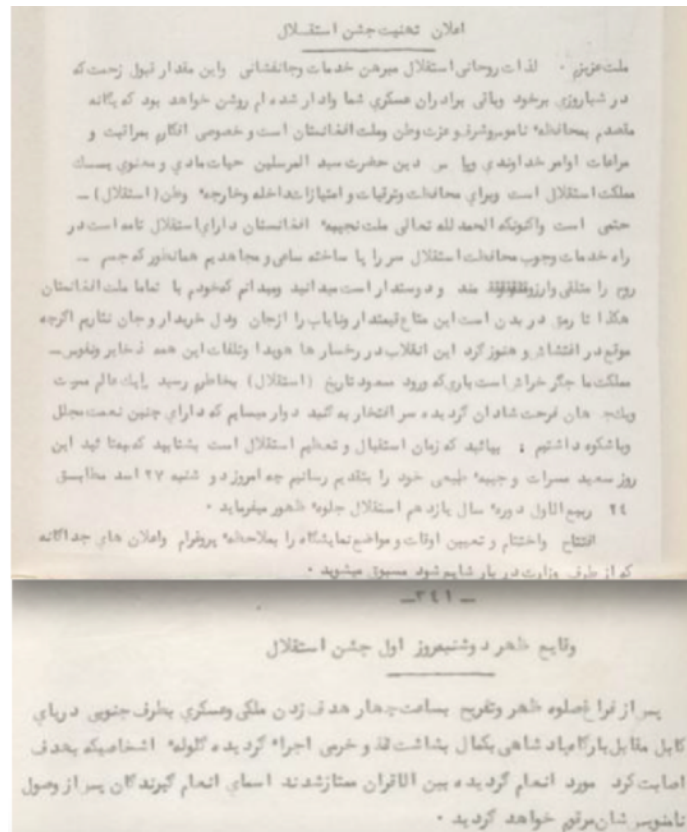 اعلان تهنیت جشن استقلال
ملت عزیزم • لذات روحانی استقلال مبرهن خدمات وجانفشانی واین مقدار قبول زحمت که
در شباروزی برخود وباقی برادران عسکری شما وادار شده ام روشن خواهد بود که یگانه
مقصدم بمحافظهٔ ناموس وشرف و عزت وطن وملت افغانستان است و خصوصی افکارم بمراتبت و
مراعات اوامر خداوندی و دین حضرت سید المرسلین حیات مادی و معنوی
مملکت استقلال است وبرای محافظت وترقیات و امتیازات داخله وخارجهٔ وطن (استقلال) ـ
حتمی است واکنونکه الحمدلله تعالی ملت نجیبهٔ افغانستان دارای استقلال تامه است در
راه خدمات وجوب محافظت استقلال سر را پا ساخته ساعی و مجاهدیم همانطور که جسم ـ
روح را مند و دوستدار است میدانید ومیدانم که خودم با تماما ملت افغانستان
هکذا تا رمق در بدن است این متاع قیمتدار ونایاب را ازجان ودل خریدار و جان نثاریم اگرچه
موقع در اغتشاش و هنوز گرد این انقلاب در رخسار ها هویدا وتلفات این همه ذخایر ونفوس ـ
مملکت ما جگر خراش است باری که ورود مسعود تاریخ (استقلال) بخاطرم رسید رایک عالم مسرت
ویکجهان فرحت شادان گردیده سر افتخار به گنبد دوار میسایم که دارای چنین نعمت مجلل
وباشکوه داشتیم ؛ بیائید که زمان استقبال و تعظیم استقلال است بشتابید که این
روز سعید مسرات و جیبهٔ طبیعی خود را بتقدیم رسانیم چه امروز دو شنبه ۲۷ اسد مطابق
۲٤ ربیع الاول دورهٔ سال یازدهم استقلال جلوه ظهور میفرماید •
افتتاح واختتام و تعیین اوقات و مواضع نمایشگاه را بملاحظهٔ پروگرام واعلان های جداگانه
که از طرف وزارت دربار شایع شود مسبوق میشوید •
ـ ۳٤۱ ـ
وقایع ظهر دوشنبه روز اول جشن استقلال
پس از فراغ صلوه ظهر وتفریح بساعت چهار هدف زدن ملکی وعسکری بطرف جنوبی دریای
کابل مقابل بارگاه پادشاهی بکمال بشاشت و خرمی اجراء گردیده گلولهٔ اشخاصیکه بهدف
اصابت کرد مورد انعام گردیده بین الاقران ممتاز شدند اسمای انعام گیرندگان پس از وصول
نامنویس شان مرقوم خواهد گردید •